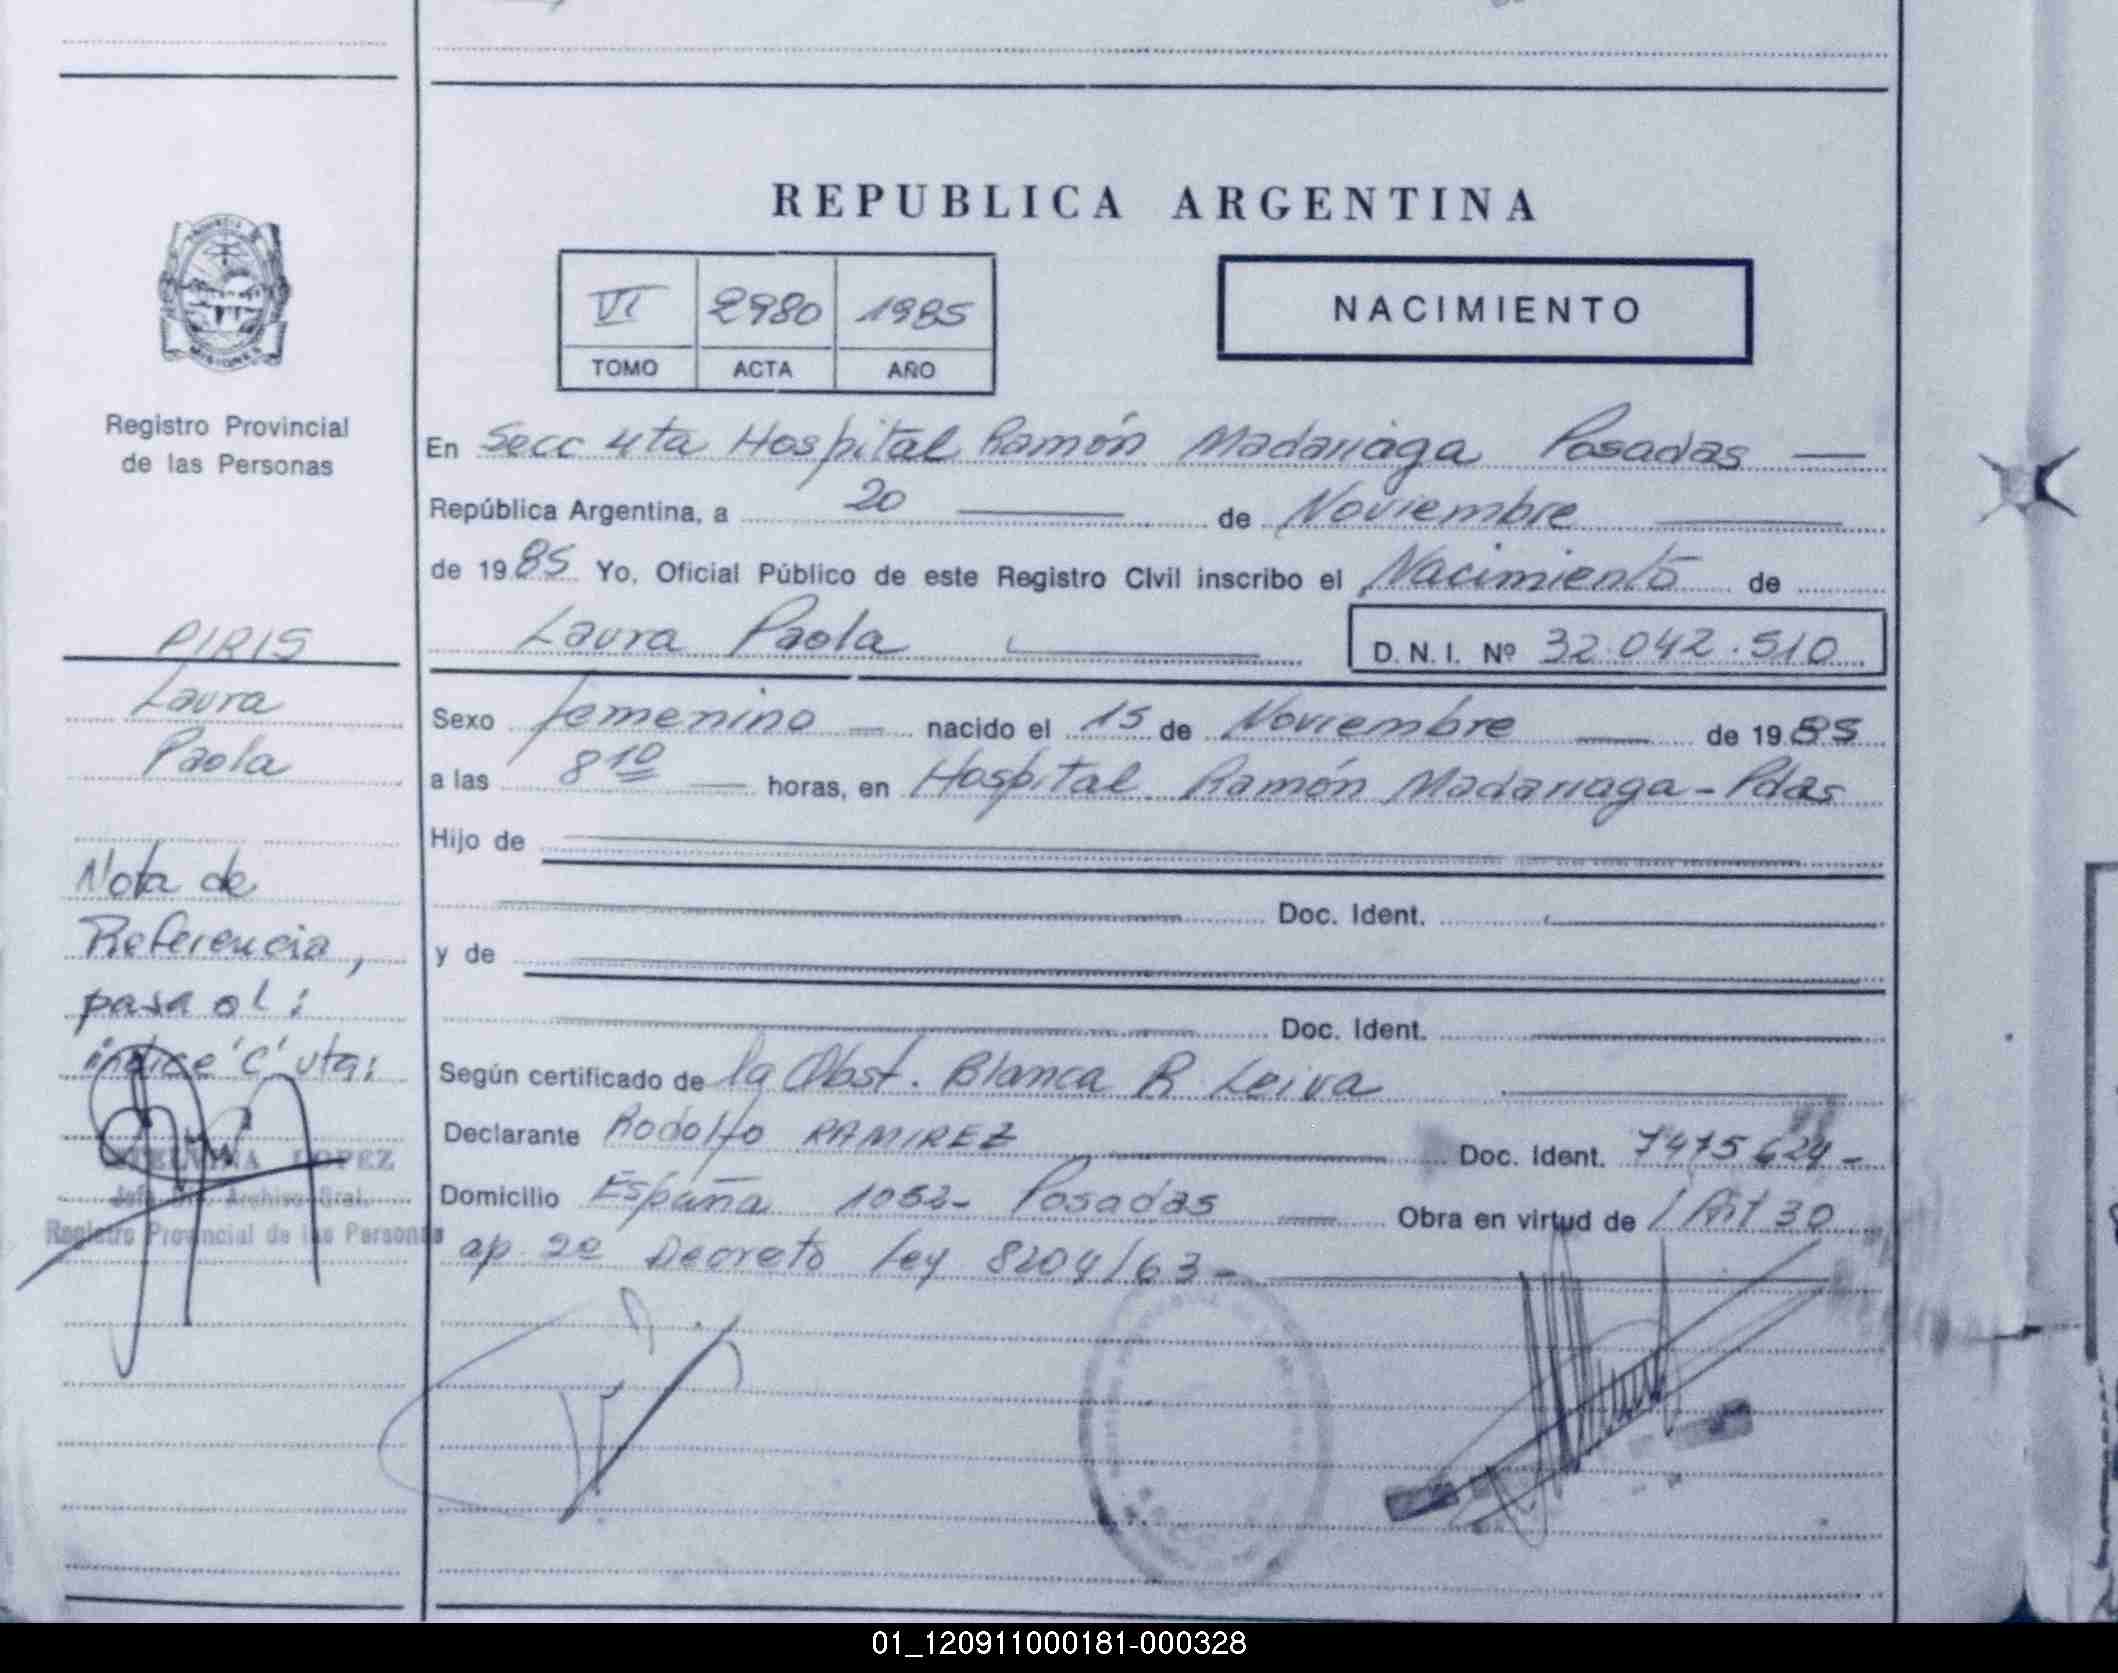 REPUBLICA ARGENTINA
VI 2980 1985
TOMO ACTA AÑO
NACIMIENTO
MISIONES
Registro Provincial
de las Personas
En Secc 4ta Hospital Ramón Madariaga Posadas —
República Argentina, a 20 — de Noviembre —
de 1985 Yo, Oficial Público de este Registro Civil inscribo el Nacimiento de
Laura Paola — D.N.I. Nº 32.042.510
Sexo femenino — nacido el 15 de Noviembre — de 1985
a las 8 10 — horas, en Hospital Ramón Madariaga - Pdas
Hijo de
Doc. Ident.
y de
Doc. Ident.
Según certificado de la Obst. Blanca R Leiva
Declarante Rodolfo RAMIREZ — Doc. Ident. 7475624 -
Domicilio España 1052- Posadas — Obra en virtud de / Art 30
ap 2º Decreto Ley 8204/63 -
PIRIS
Laura
Paola
Nota de
Referencia,
pasa al:
indice 'C' uta:
LOPEZ
Archivo Gral.
Registro Provincial de las Personas
01_120911000181-000328